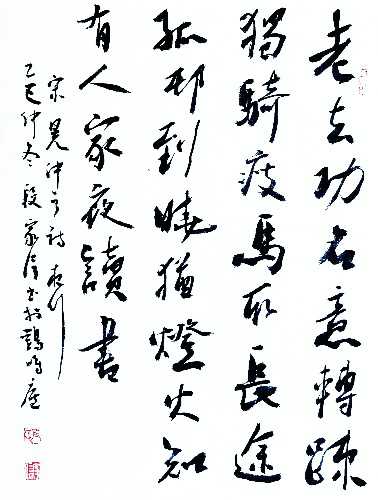 老去功名意轉疎
獨騎瘦馬取長途
孤邨到曉猶燈火知
有人家夜讀書
宋晁沖之詩夜行
乙巳仲冬段家書於鳴廬